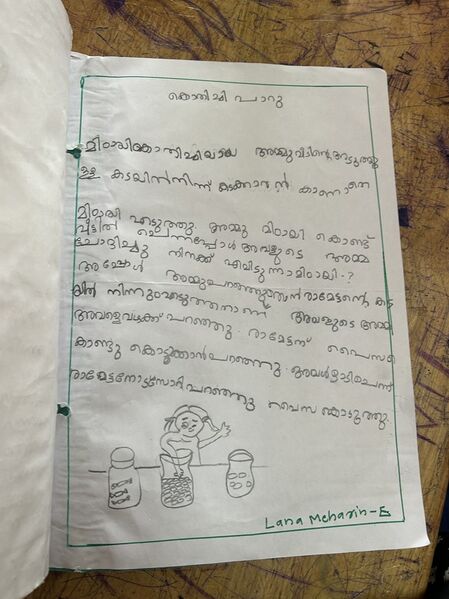 കൊതിച്ചി പാറു
മിഠായിക്കൊതിച്ചിയായ അമ്മു വീടിന്റെ അടുത്തു
ള്ള കടയിൽ നിന്ന് കടക്കാരൻ കാണാതെ
മിഠായി എടുത്തു. അമ്മു മിഠായി കൊണ്ട്
വീട്ടിൽ ചെന്നപ്പോൾ അവളുടെ അമ്മ
ചോദിച്ചു നിനക്ക് എവിടുന്നാ മിഠായി-?
അപ്പോൾ അമ്മു പറഞ്ഞു രാമേട്ടന്റെ കട
യിൽ നിന്നും എടുത്തതാണ് അവളുടെ അമ്മ
അവളെ വഴക്ക് പറഞ്ഞു. രാമേട്ടന് പൈസ
കൊണ്ടു കൊടുക്കാൻ പറഞ്ഞു. അവൾ ഓടിചെന്ന്
രാമേട്ടനോട് സോറി പറഞ്ഞു പൈസ കൊടുത്തു.
Lana Meharin-E